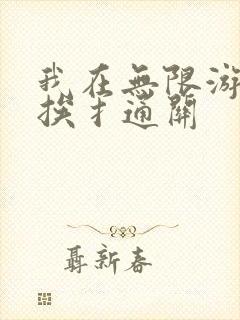 我在無限游
挨扌通關
聶新春